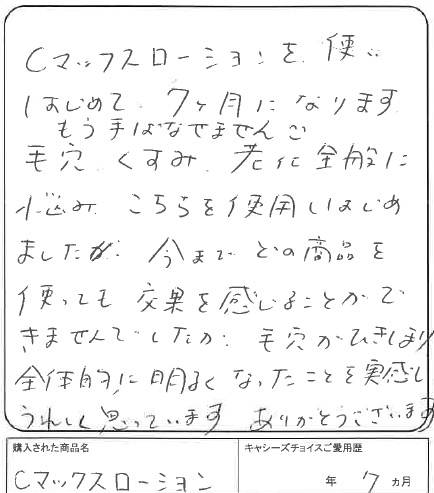 Cマックスローションを 使い
はじめて 7ヶ月になります
もう手ばなせませんご
毛穴 くすみ 老化全般に
悩み こちらを使用しはじめ
ましたが、今まで どの商品を
使っても 効果を感じることがで
きませんでしたが、毛穴がひきしまり
全体的に明るくなったことを実感し
うれしく思っています ありがとうございます
購入された商品名
キャシーズチョイスご愛用歴
Cマックスローション
年 7 ヵ月